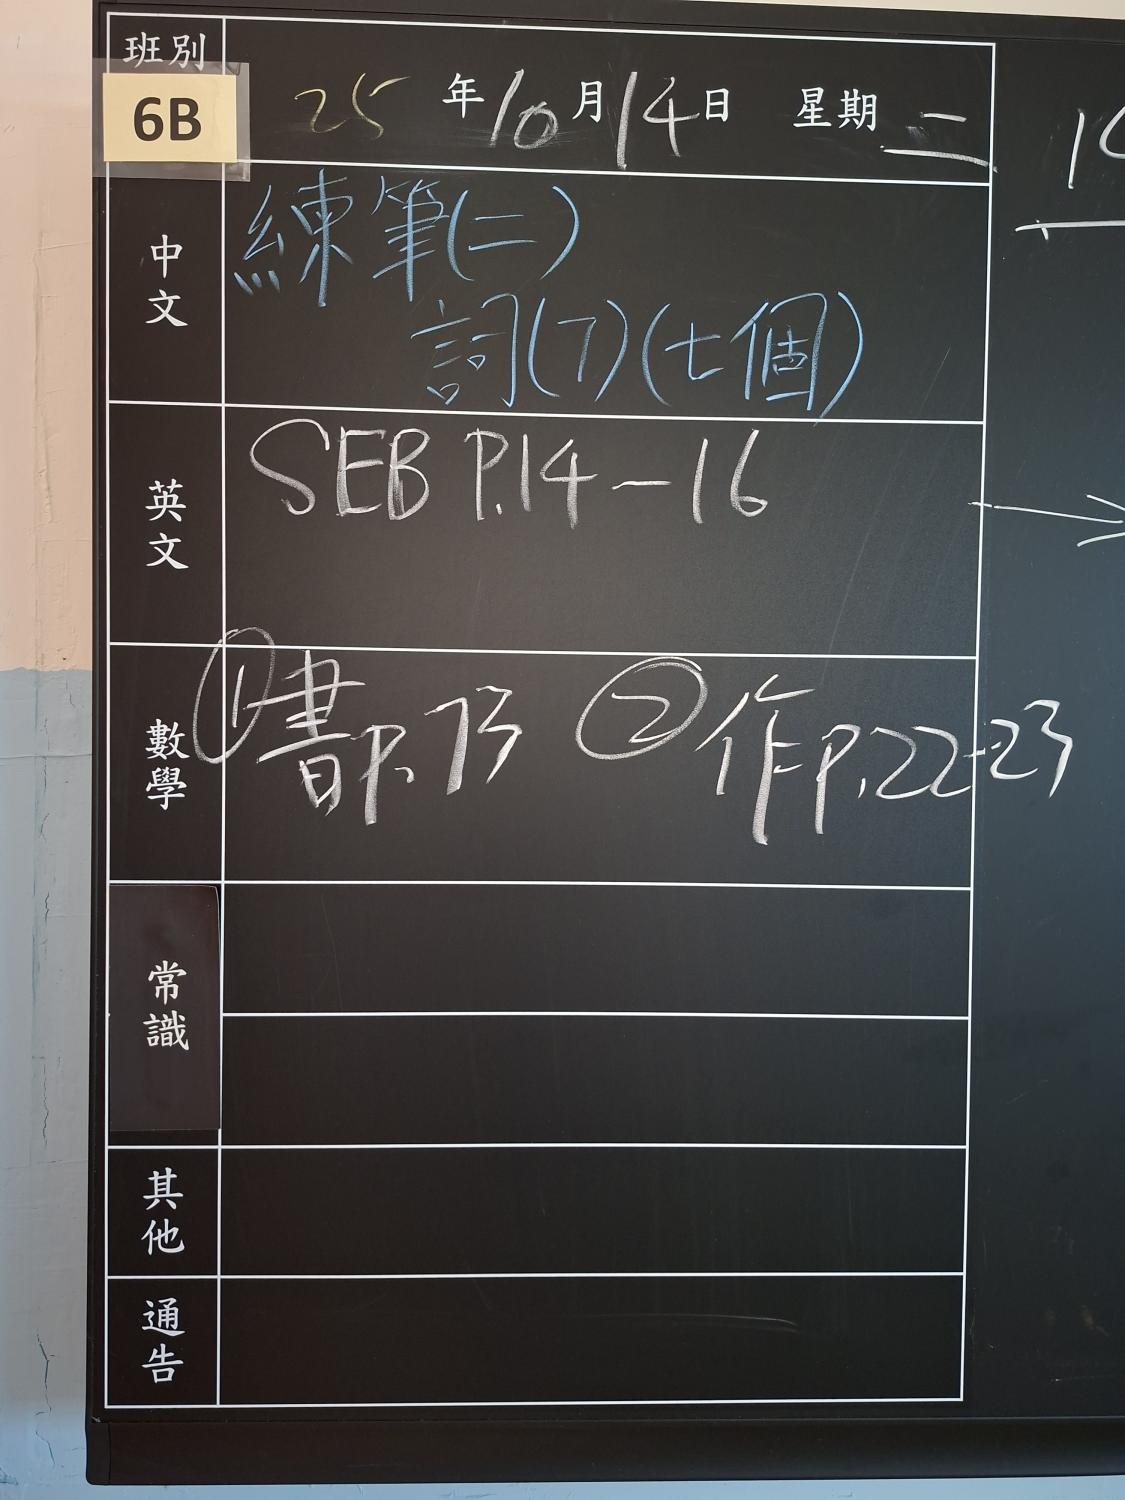 班別
6B
25年10月14日 星期二
中文
練筆(二)
詞(7)(七個)
英文
SEB P.14-16
數學
①書P.73 ②作P.22-23
常識
其他
通告